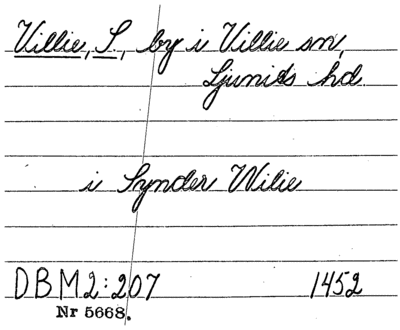 Villie, S., by i Villie sn,
Ljunids hd.
i Synder Wilie
DBM2:207 1452
Nr 5668.